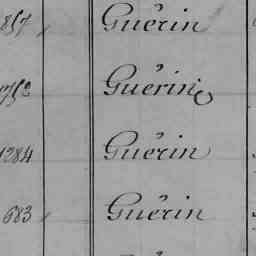 857 Guérin
Guérin
1284 Guérin
683 Guérin